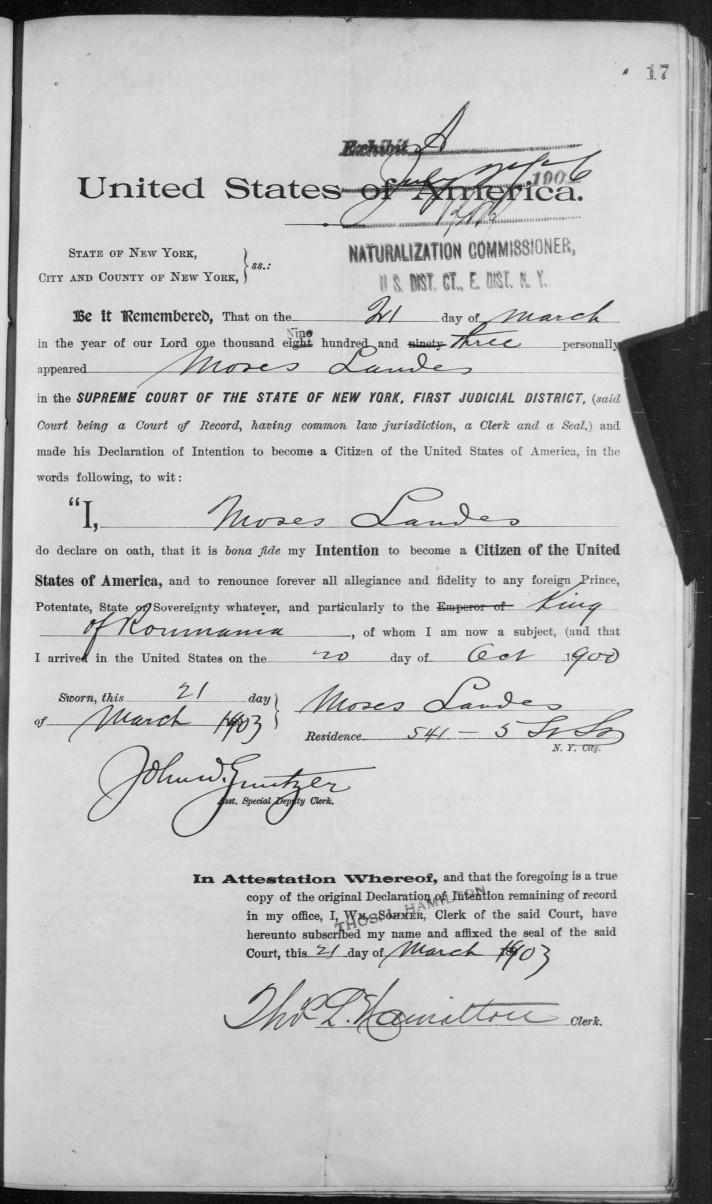 17
Exhibit A
July 1906
United States of America.
NATURALIZATION COMMISSIONER,
U S. DIST. CT., E. DIST. N. Y.
STATE OF NEW YORK,
CITY AND COUNTY OF NEW YORK, } ss.:
Be it Remembered, That on the 21 day of March
in the year of our Lord one thousand eight Nine hundred and ninety three personally
appeared Moses Landes
in the SUPREME COURT OF THE STATE OF NEW YORK, FIRST JUDICIAL DISTRICT, (said
Court being a Court of Record, having common law jurisdiction, a Clerk and a Seal,) and
made his Declaration of Intention to become a Citizen of the United States of America, in the
words following, to wit:
"I, Moses Landes
do declare on oath, that it is bona fide my Intention to become a Citizen of the United
States of America, and to renounce forever all allegiance and fidelity to any foreign Prince,
Potentate, State or Sovereignty whatever, and particularly to the Emperor of King
of Roumania, of whom I am now a subject, (and that
I arrived in the United States on the 20 day of Oct 1900
Sworn, this 21 day
of March 1903
Moses Landes
Residence 541 - 5
N. Y. City.
John W.
Asst. Special Deputy Clerk.
In Attestation Whereof, and that the foregoing is a true
copy of the original Declaration of Intention remaining of record
THOS. L. HAMILTON
in my office, I, WM. SOHMER, Clerk of the said Court, have
hereunto subscribed my name and affixed the seal of the said
Court, this 21 day of March 1903
Thos. L. Hamilton Clerk.